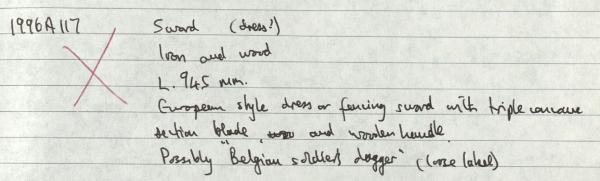 1996A117 Sword (dress?)
Iron and wood
L. 945 mm.
European style dress or fencing sword with triple concave
section blade, and wooden handle.
Possibly "Belgian soldiers dagger" (loose label)